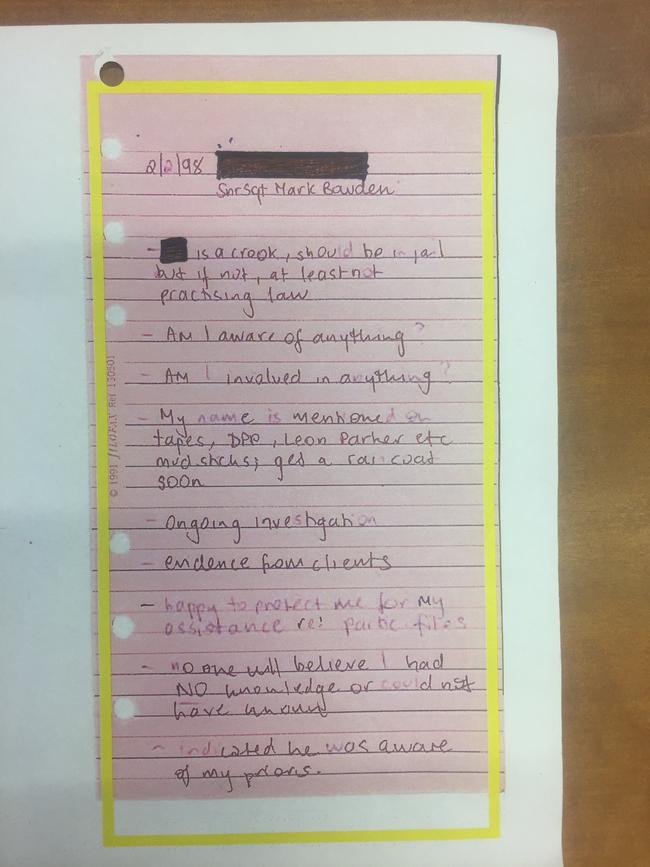 2/2/98
SnrSgt Mark Bowden
- is a crook, should be in jail
but if not, at least not
practising law
- AM I aware of anything?
- AM I involved in anything?
- My name is mentioned on
tapes, DPP, Leon Parker etc
mud sticks; get a raincoat
soon
- ongoing investigation
- evidence from clients
- happy to protect me for my
assistance re: partic files
- no one will believe I had
NO knowledge or could not
have known
- indicated he was aware
of my priors.
© 1991 FILOFAX Ref 130501